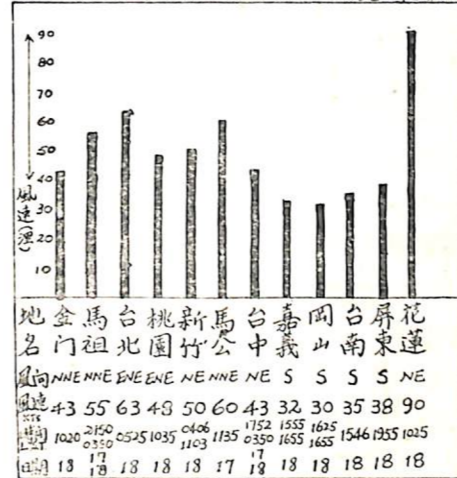 90
80
70
60
50
40
30
20
10
風速(浬)
地名 金门 馬祖 台北 桃園 新竹 馬公 台中 嘉義 岡山 台南 屏東 花蓮
風向 NNE NNE ENE ENE NE NNE NE S S S S NE
風速 KTS 43 55 63 48 50 60 43 32 30 35 38 90
1020 2150 0350 0525 1035 0406 1103 1135 1752 0350 1555 1655 1625 1655 1546 1955 1025
日期 18 17 18 18 18 18 17 17 18 18 18 18 18 18